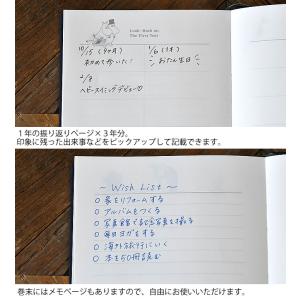 Look Back on
The First Year
10/15 (9ヶ月)
初めて歩いた!
1/6 (1才)
おたん生日
2/8
ベビースイミングデビュー♡
1年の振り返りページ×3年分。
印象に残った出来事などをピックアップして記載できます。
~ Wish List ~
○ 家をリフォームする
○ アルバムをつくる
○ 写真館で記念写真を撮る
○ 毎日ヨガをする
○ 海外旅行にいく
○ 本を50冊読む
巻末にはメモページもありますので、自由にお使いいただけます。